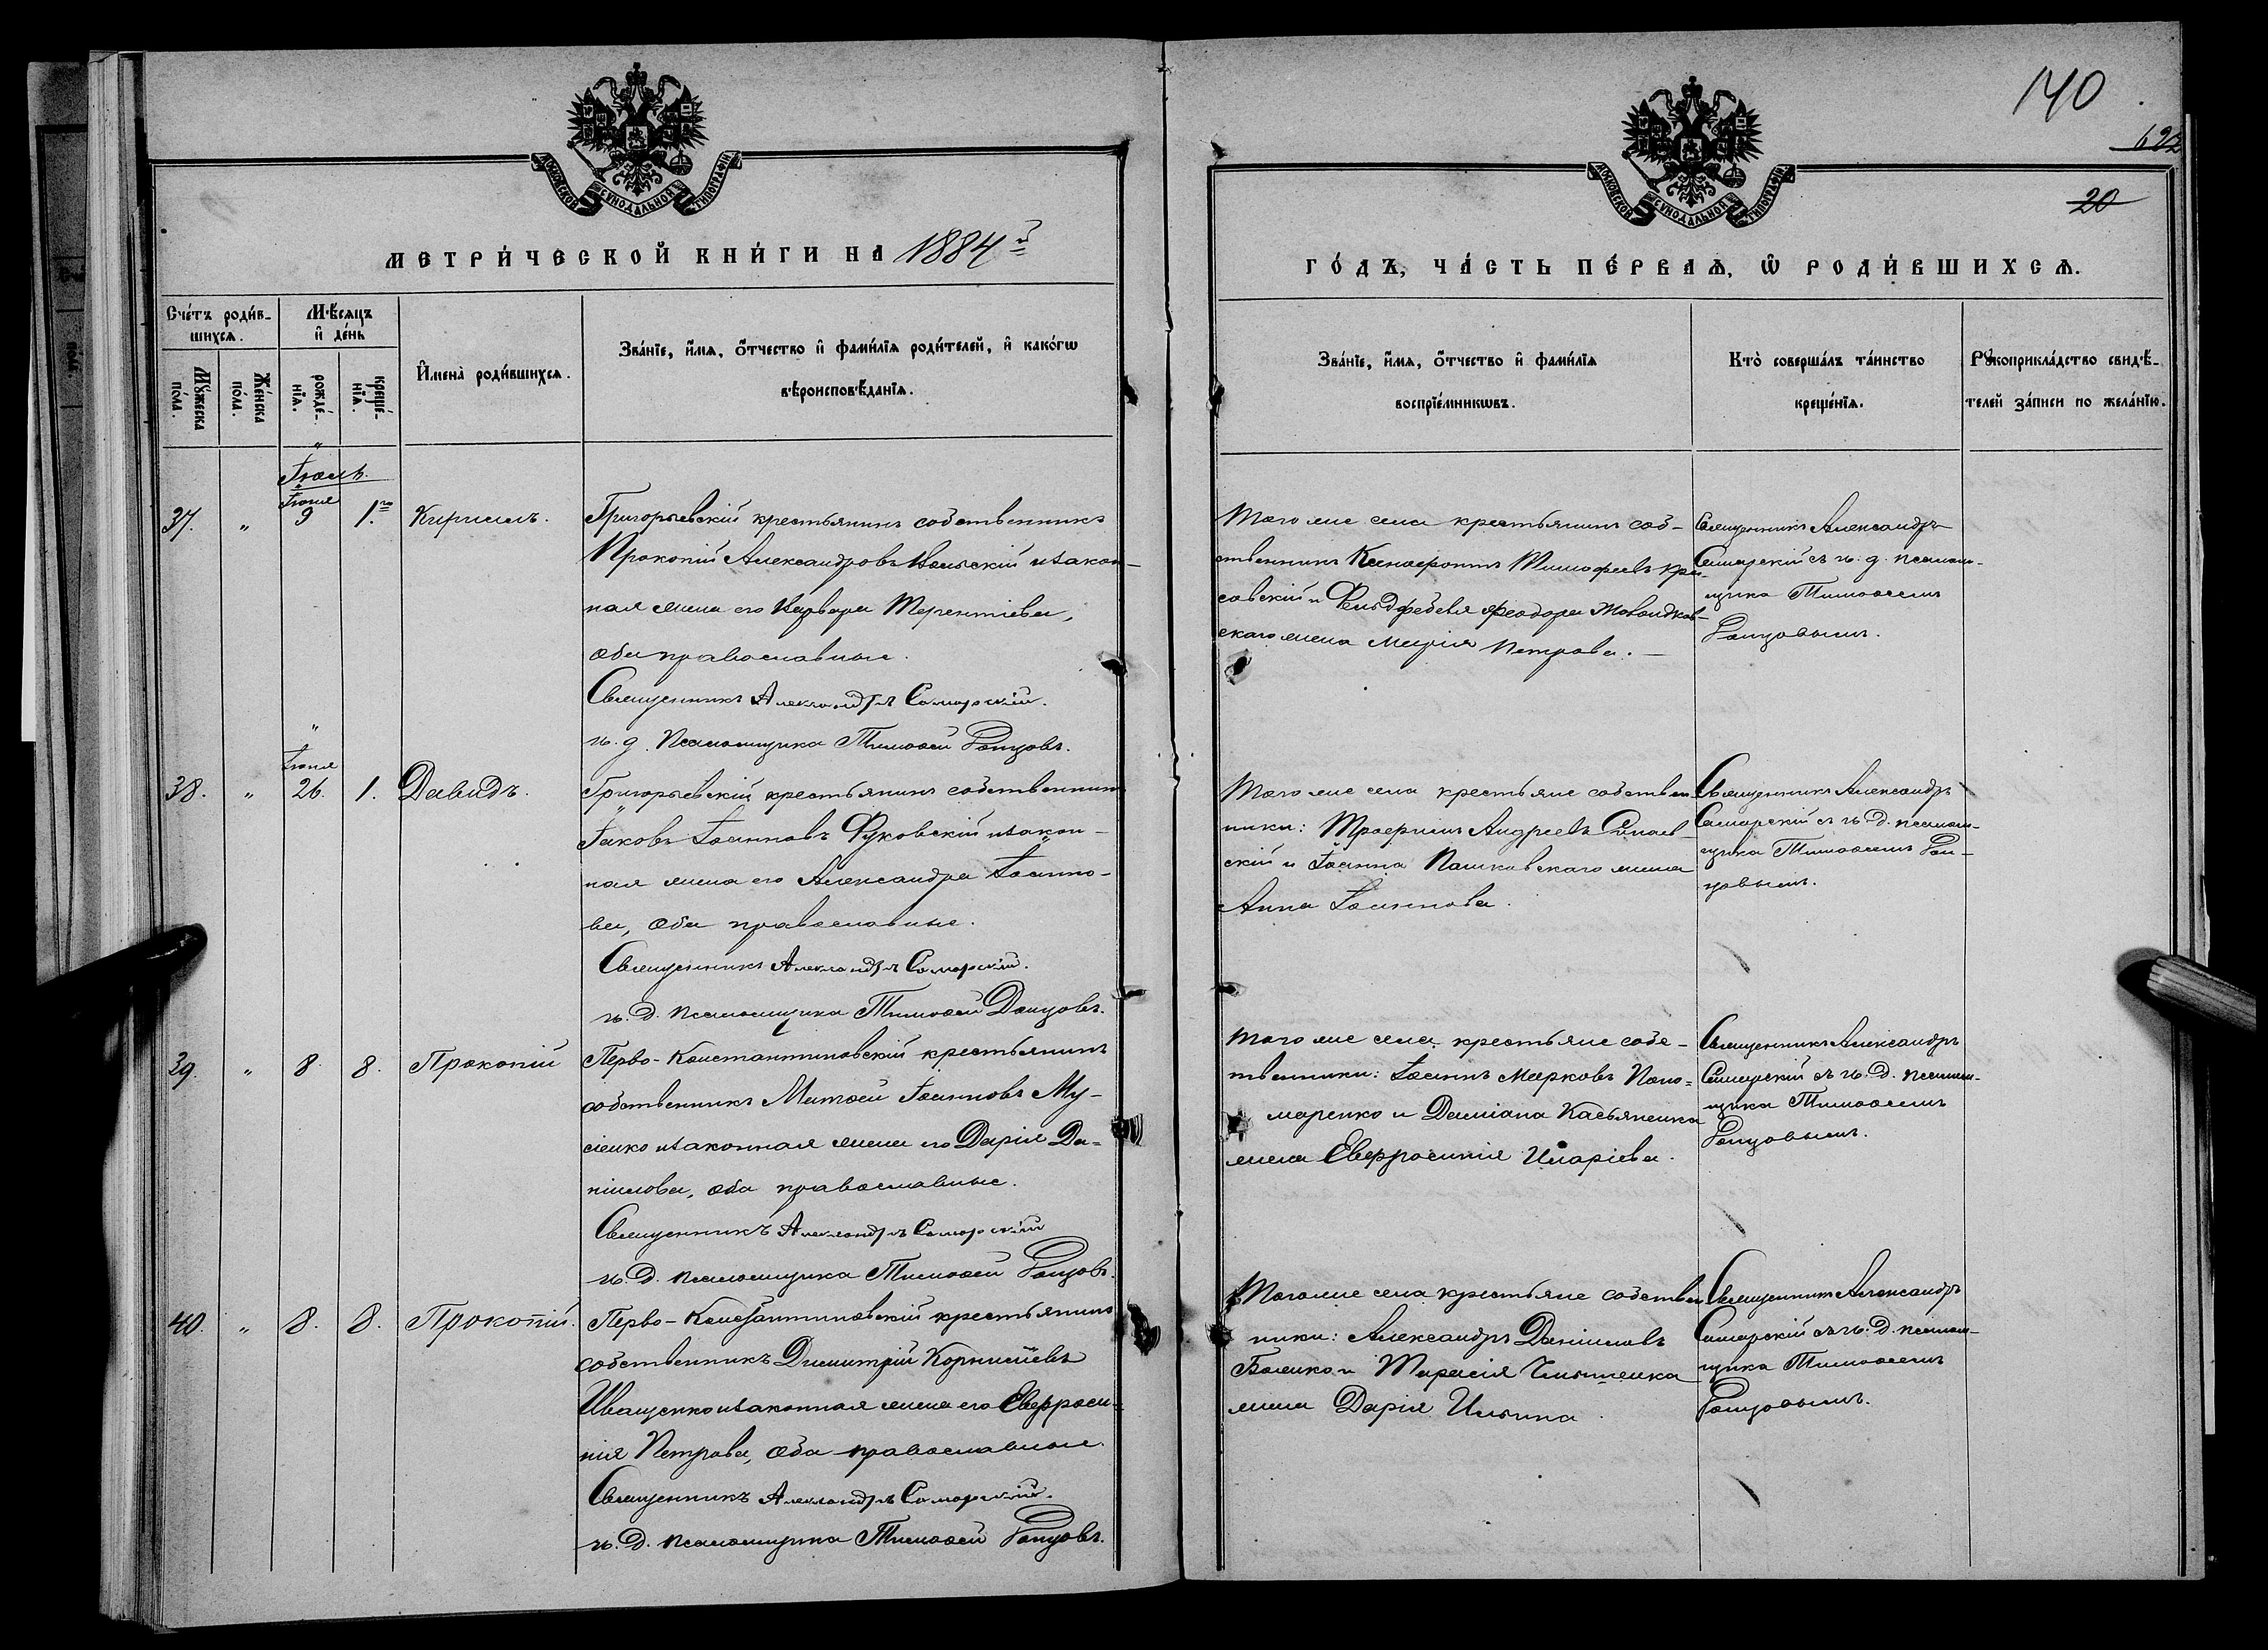 140
692
20
МОСКОВСКОЙ СѴНОДАЛЬНОЙ ТИПОГРАФІИ
МОСКОВСКОЙ СѴНОДАЛЬНОЙ ТИПОГРАФІИ
МЕТРИ́ЧЕСКОЙ КНИ́ГИ НА 1884й
ГО́ДЪ, ЧА́СТЬ ПЕ́РВАѦ, Ѡ РОДИ́ВШИХСѦ.
Сче́тъ роди́в-
шихсѧ.
Мꙋ́жеска по́ла.
Же́нска по́ла.
Мѣ́сѧцъ и де́нь
рожде́-нїѧ.
креще́-нїѧ.
Имена̀ роди́вшихсѧ.
Зва́нїе, и́мѧ, ѻ́тчество и фами́лїѧ роди́телей, и како́гѡ
вѣроисповѣ́данїѧ.
Зва́нїе, и́мѧ, ѻ́тчество и фами́лїѧ
воспрїе́мникѡвъ.
Кто̀ соверша́лъ та́инство
креще́нїѧ.
Рꙋкоприкла́дство свидѣ́-
телей за́писи по жела́нїю.
Іюль.
Іюня
37. " 9 1.го Кириллъ.
Григорьевскій крестьянинъ собственникъ
Прокопій Александровъ Вольскій и закон-
ная жена его Варвара Терентіева,
оба православные.
Священникъ Александръ Самарскій.
и. д. псаломщика Тимоѳей Ронцовъ.
Того же села крестьянинъ соб-
ственникъ Ксенофонтъ Тимофеевъ Кры-
совскій и Фельдфебеля Ѳеодора
скаго жена Марія Петрова.
Священникъ Александръ
Самарскій съ и. д. псалом-
щика Тимоѳеемъ
Ронцовымъ.
Іюня
38. " 26. 1. Давидъ.
Григорьевскій крестьянинъ собственникъ
Іаковъ Іоанновъ Фуковскій и закон-
ная жена его Александра Іоанно-
ва, оба православные.
Священникъ Александръ Самарскій.
и. д. псаломщика Тимоѳей Ронцовъ.
Того же села крестьяне собствен-
ники: Трофимъ Андреевъ
скій и Іоанна Пашковскаго жена
Анна Іоаннова.
Священникъ Александръ
Самарскій съ и. д. псалом-
щика Тимоѳеемъ Рон-
цовымъ.
39. " 8. 8. Прокопій
Перво-Константиновскій крестьянинъ
собственникъ Матѳей Іоанновъ Му-
сіенко и законная жена его Дарія Да-
ніилова, оба православные.
Священникъ Александръ Самарскій
и. д. псаломщика Тимоѳей Ронцовъ.
Того же села крестьяне собс-
твенники: Іоаннъ Марковъ Поно-
маренко и Даміана Касьяненка
жена Евфросинія Иларіева.
Священникъ Александръ
Самарскій съ и. д. псалом-
щика Тимоѳеемъ
Ронцовымъ.
40. " 8. 8. Прокопій.
Перво-Константиновскій крестьянинъ
собственникъ Димитрій Корниліевъ
Иващенко и законная жена его Евфроси-
нія Петрова, оба православные.
Священникъ Александръ Самарскій.
и. д. псаломщика Тимоѳей Ронцовъ.
Того же села крестьяне собствен-
ники: Александръ Даніиловъ
Боженко и Тарасія
жена Дарія Ильина.
Священникъ Александръ
Самарскій съ и. д. псалом-
щика Тимоѳеемъ
Ронцовымъ.